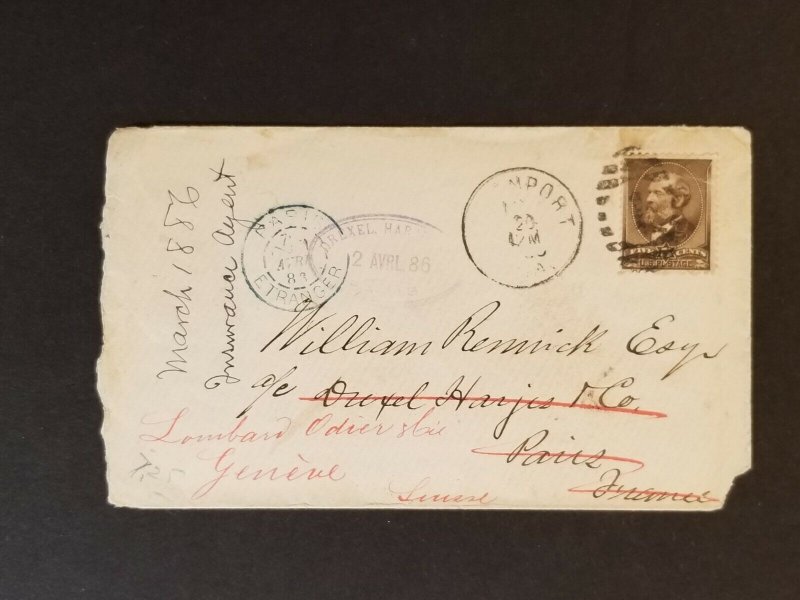 March 1886
Insurance Agent
PARIS
AVRIL
ETRANGER
DREXEL, HAR
2 AVRL. 86
NPORT
20
FIVE CENTS
U.S. POSTAGE
William Renwick Esqr
a/c Drexel Harjes & Co.
Paris
France
Lombard Odier & Cie
Genève
Suisse